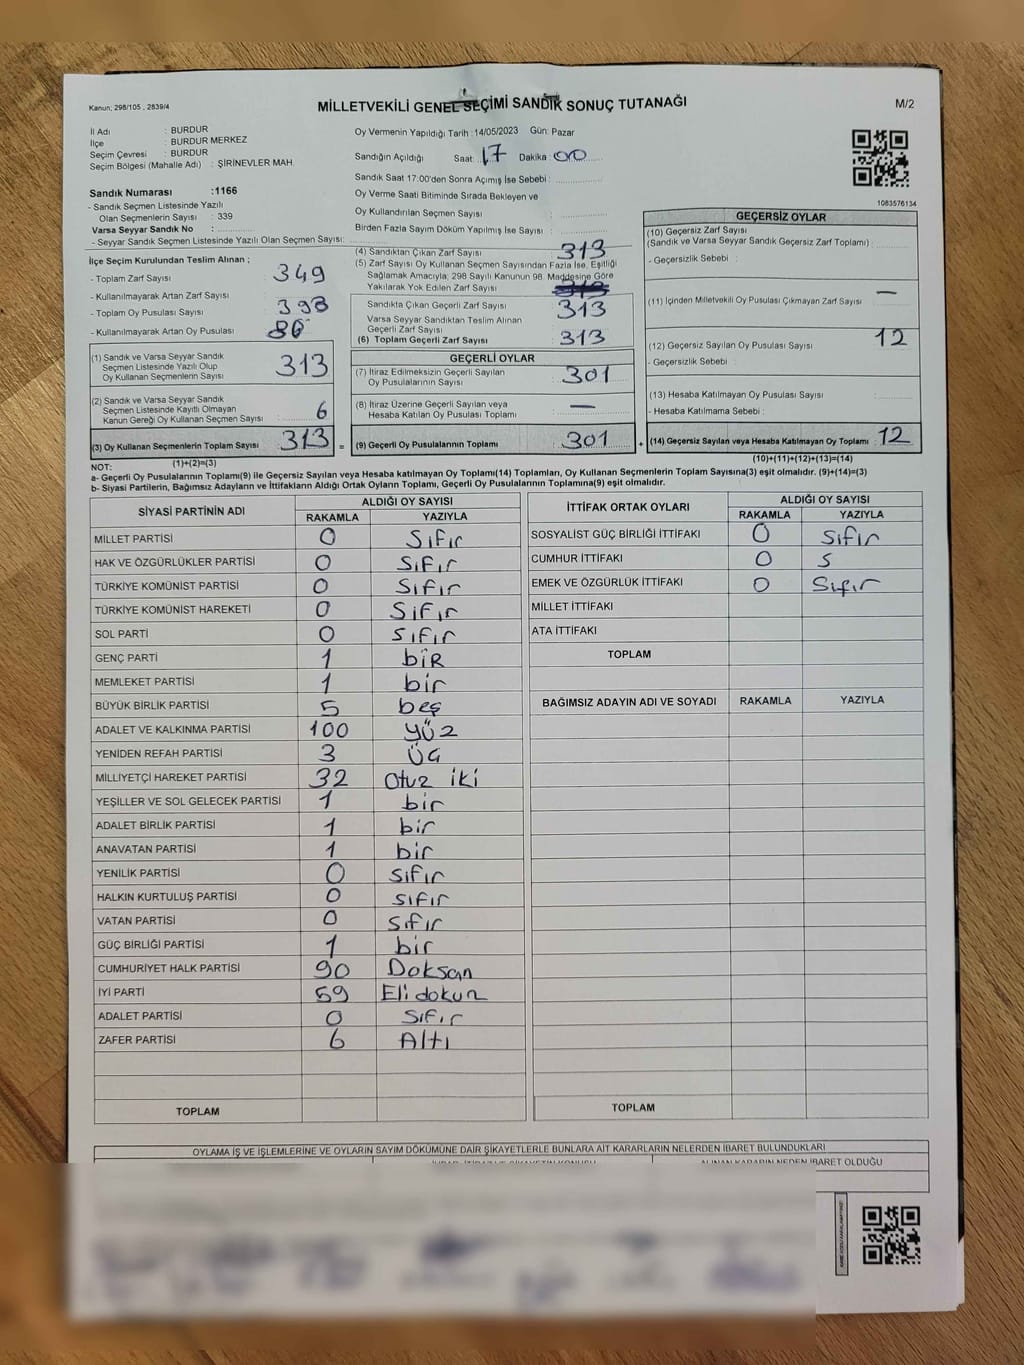 Kanun; 298/105 , 2839/4
MİLLETVEKİLİ GENEL SEÇİMİ SANDIK SONUÇ TUTANAĞI
M/2
İl Adı : BURDUR
İlçe : BURDUR MERKEZ
Seçim Çevresi : BURDUR
Seçim Bölgesi (Mahalle Adı) : ŞİRİNEVLER MAH.
Sandık Numarası :1166
- Sandık Seçmen Listesinde Yazılı
Olan Seçmenlerin Sayısı : 339
Varsa Seyyar Sandık No :
- Seyyar Sandık Seçmen Listesinde Yazılı Olan Seçmen Sayısı:
Oy Vermenin Yapıldığı Tarih :14/05/2023 Gün: Pazar
Sandığın Açıldığı Saat: 17 Dakika 00
Sandık Saat 17:00'den Sonra Açımış İse Sebebi :
Oy Verme Saati Bitiminde Sırada Bekleyen ve
Oy Kullandırılan Seçmen Sayısı :
Birden Fazla Sayım Döküm Yapılmış İse Sayısı :
1083576134
İlçe Seçim Kurulundan Teslim Alınan ;
- Toplam Zarf Sayısı 349
- Kullanılmayarak Artan Zarf Sayısı
- Toplam Oy Pusulası Sayısı 398
- Kullanılmayarak Artan Oy Pusulası 86
(1) Sandık ve Varsa Seyyar Sandık
Seçmen Listesinde Yazılı Olup
Oy Kullanan Seçmenlerin Sayısı 313
(2) Sandık ve Varsa Seyyar Sandık
Seçmen Listesinde Kayıtlı Olmayan
Kanun Gereği Oy Kullanan Seçmen Sayısı 6
(3) Oy Kullanan Seçmenlerin Toplam Sayısı 313 =
(1)+(2)=(3)
(4) Sandıktan Çıkan Zarf Sayısı 313
(5) Zarf Sayısı Oy Kullanan Seçmen Sayısından Fazla İse, Eşitliği
Sağlamak Amacıyla; 298 Sayılı Kanunun 98. Maddesine Göre
Yakılarak Yok Edilen Zarf Sayısı
Sandıkta Çıkan Geçerli Zarf Sayısı 313
Varsa Seyyar Sandıktan Teslim Alınan
Geçerli Zarf Sayısı
(6) Toplam Geçerli Zarf Sayısı 313
GEÇERLİ OYLAR
(7) İtiraz Edilmeksizin Geçerli Sayılan
Oy Pusulalarının Sayısı 301
(8) İtiraz Üzerine Geçerli Sayılan veya
Hesaba Katılan Oy Pusulası Toplamı —
(9) Geçerli Oy Pusulalarının Toplamı 301 +
GEÇERSİZ OYLAR
(10) Geçersiz Zarf Sayısı
(Sandık ve Varsa Seyyar Sandık Geçersiz Zarf Toplamı)
- Geçersizlik Sebebi :
(11) İçinden Milletvekili Oy Pusulası Çıkmayan Zarf Sayısı —
(12) Geçersiz Sayılan Oy Pusulası Sayısı 12
- Geçersizlik Sebebi :
(13) Hesaba Katılmayan Oy Pusulası Sayısı
- Hesaba Katılmama Sebebi :
(14) Geçersiz Sayılan veya Hesaba Katılmayan Oy Toplamı 12
(10)+(11)+(12)+(13)=(14)
NOT:
a- Geçerli Oy Pusulalarının Toplamı(9) ile Geçersiz Sayılan veya Hesaba katılmayan Oy Toplamı(14) Toplamları, Oy Kullanan Seçmenlerin Toplam Sayısına(3) eşit olmalıdır. (9)+(14)=(3)
b- Siyasi Partilerin, Bağımsız Adayların ve İttifakların Aldığı Ortak Oyların Toplamı, Geçerli Oy Pusulalarının Toplamına(9) eşit olmalıdır.
SİYASİ PARTİNİN ADI ALDIĞI OY SAYISI
RAKAMLA YAZIYLA
MİLLET PARTİSİ 0 Sıfır
HAK VE ÖZGÜRLÜKLER PARTİSİ 0 Sıfır
TÜRKİYE KOMÜNİST PARTİSİ 0 Sıfır
TÜRKİYE KOMÜNİST HAREKETİ 0 Sıfır
SOL PARTİ 0 Sıfır
GENÇ PARTİ 1 bİR
MEMLEKET PARTİSİ 1 bir
BÜYÜK BİRLİK PARTİSİ 5 beş
ADALET VE KALKINMA PARTİSİ 100 YÜZ
YENİDEN REFAH PARTİSİ 3 ÜÇ
MİLLİYETÇİ HAREKET PARTİSİ 32 Otuz iki
YEŞİLLER VE SOL GELECEK PARTİSİ 1 bir
ADALET BİRLİK PARTİSİ 1 bir
ANAVATAN PARTİSİ 1 bir
YENİLİK PARTİSİ 0 sıfır
HALKIN KURTULUŞ PARTİSİ 0 sıfır
VATAN PARTİSİ 0 sıfır
GÜÇ BİRLİĞİ PARTİSİ 1 bir
CUMHURİYET HALK PARTİSİ 90 Doksan
İYİ PARTİ 59 Elidokuz
ADALET PARTİSİ 0 Sıfır
ZAFER PARTİSİ 6 Altı
TOPLAM
İTTİFAK ORTAK OYLARI ALDIĞI OY SAYISI
RAKAMLA YAZIYLA
SOSYALİST GÜÇ BİRLİĞİ İTTİFAKI 0 Sıfır
CUMHUR İTTİFAKI 0 S
EMEK VE ÖZGÜRLÜK İTTİFAKI 0 Sıfır
MİLLET İTTİFAKI
ATA İTTİFAKI
TOPLAM
BAĞIMSIZ ADAYIN ADI VE SOYADI RAKAMLA YAZIYLA
TOPLAM
OYLAMA İŞ VE İŞLEMLERİNE VE OYLARIN SAYIM DÖKÜMÜNE DAİR ŞİKAYETLERLE BUNLARA AİT KARARLARIN NELERDEN İBARET BULUNDUKLARI
ALINAN KARARIN NEDEN İBARET OLDUĞU